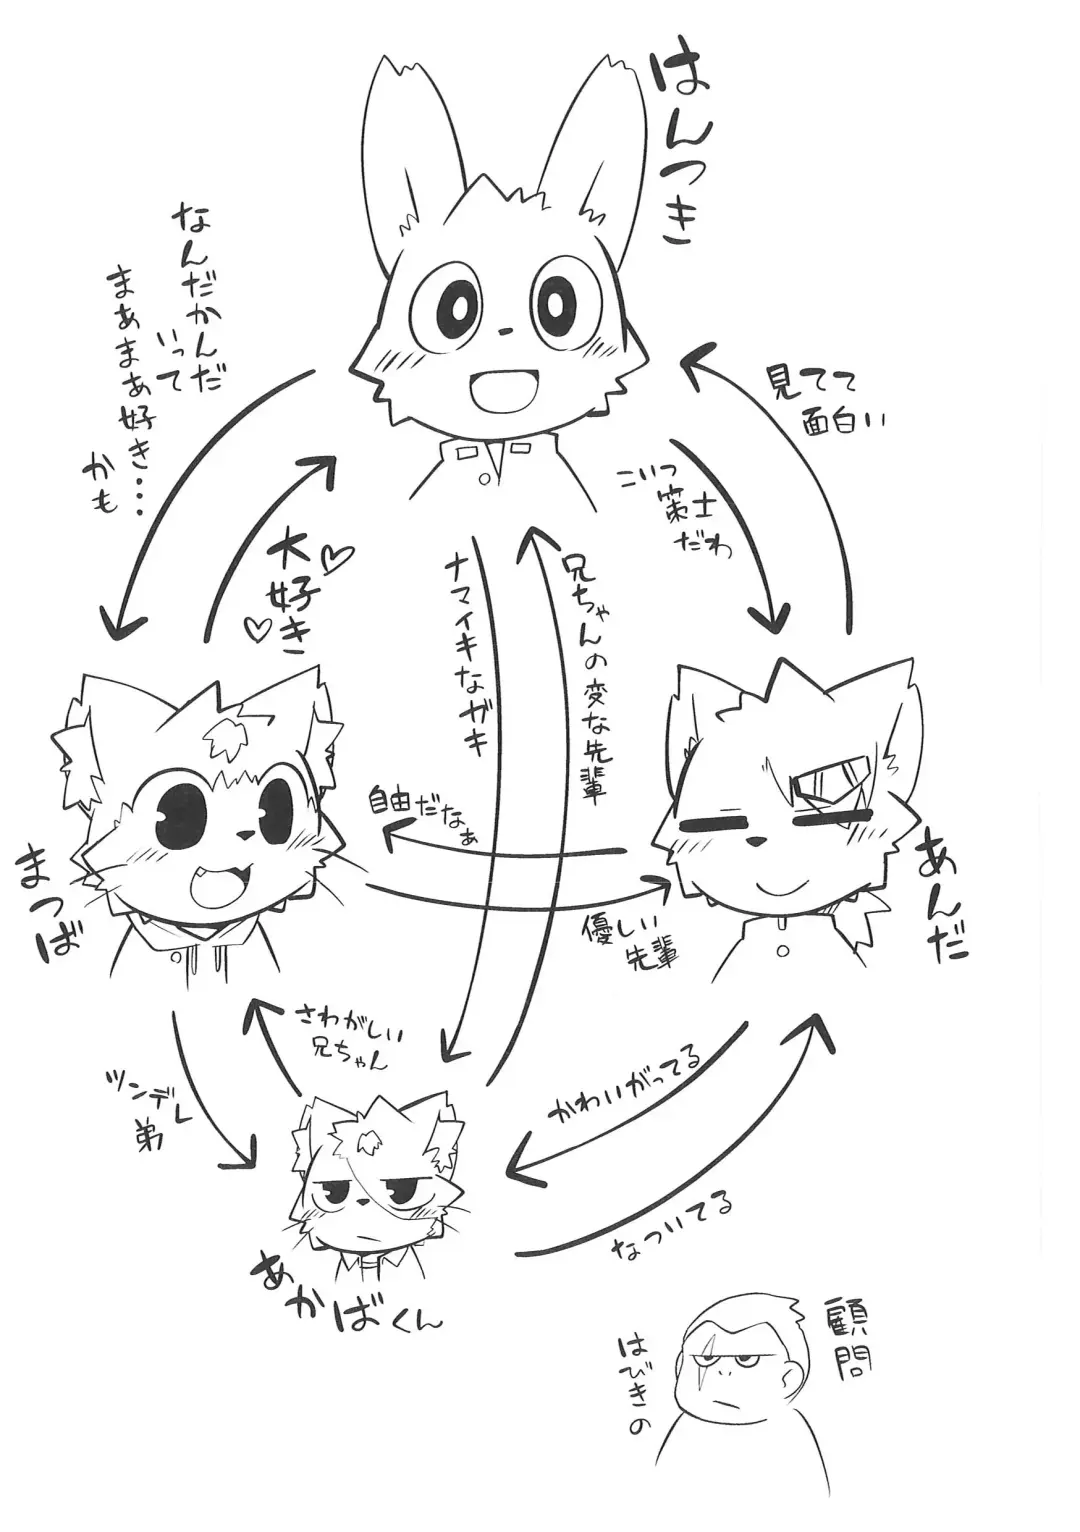 はんつき
なんだかんだ
いって
まぁまぁ好き・・・
かも
大好き
見てて
面白い
こいつ
策士
だわ
ナマイキなガキ
兄ちゃんの変な先輩
自由だなぁ
優しい
先輩
まつば
あんだ
さわがしい
兄ちゃん
ツンデレ
弟
かわいがってる
なついてる
あかばくん
顧問
はびきの